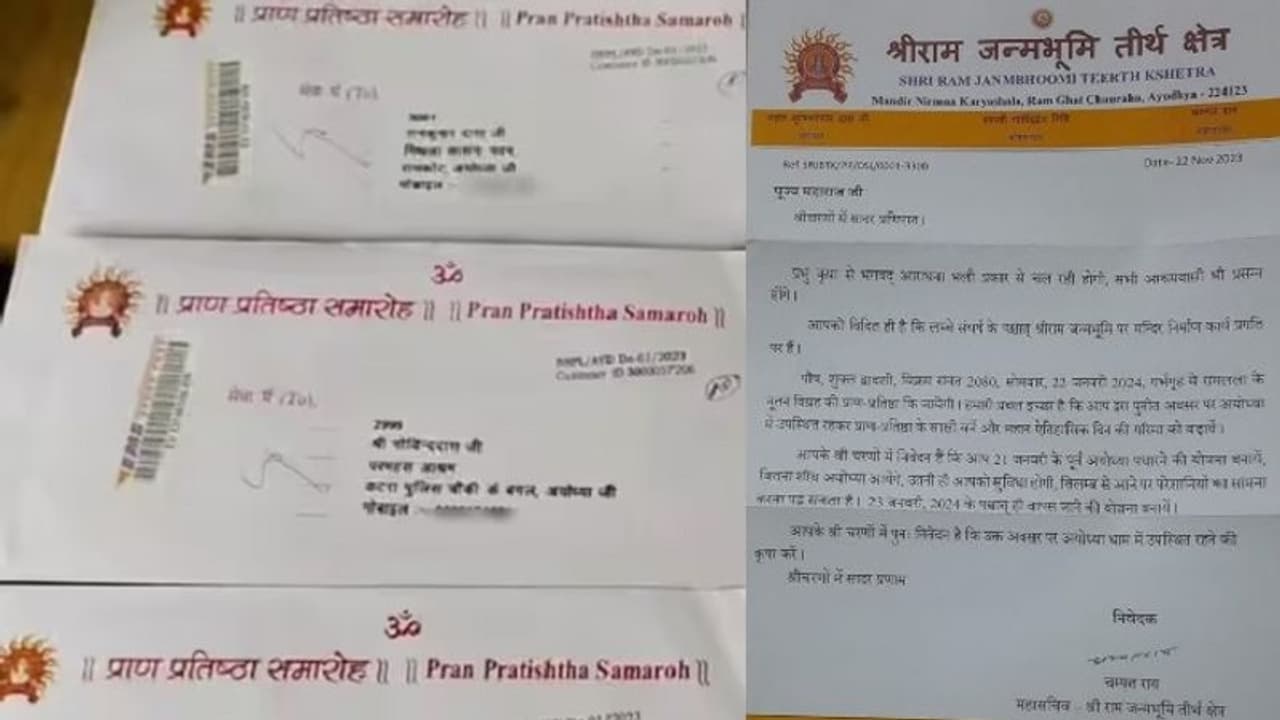 || प्राण प्रतिष्ठा समारोह || || Pran Pratishtha Samaroh ||
सेवा में (To),
राजकुमार दास जी
रामकोट, अयोध्या जी
मोबाइल :-
ॐ
|| प्राण प्रतिष्ठा समारोह || || Pran Pratishtha Samaroh ||
Customer ID
सेवा में (To),
श्री गोविन्ददास जी
परमहंस आश्रम
कटरा पुलिस चौकी के बगल, अयोध्या जी
मोबाइल :-
ॐ
|| प्राण प्रतिष्ठा समारोह || || Pran Pratishtha Samaroh ||
श्रीराम जन्मभूमि तीर्थ क्षेत्र
SHRI RAM JANMBHOOMI TEERTH KSHETRA
Mandir Nirman Karyashala, Ram Ghat Chauraha, Ayodhya - 224123
Date- 22 Nov 2023
पूज्य महाराज जी
श्रीचरणों में सादर प्रणिपात।
प्रभु कृपा से भगवद् आराधना भली प्रकार से चल रही होगी, सभी आश्रमवासी भी प्रसन्न
होंगे।
आपको विदित ही है कि लम्बे संघर्ष के पश्चात् श्रीराम जन्मभूमि पर मन्दिर निर्माण कार्य प्रगति
पर है।
पौष, शुक्ल द्वादशी, विक्रम संवत 2080, सोमवार, 22 जनवरी 2024, गर्भगृह में रामलला के
नूतन विग्रह की प्राण-प्रतिष्ठा कि जायेगी। हमारी प्रबल इच्छा है कि आप इस पुनीत अवसर पर अयोध्या
में उपस्थित रहकर प्राण-प्रतिष्ठा के साक्षी बनें और महान ऐतिहासिक दिन की गरिमा को बढ़ावें।
आपके श्री चरणों में निवेदन है कि आप 21 जनवरी के पूर्व अयोध्या पधारने की योजना बनायें,
जितना शीघ्र अयोध्या आयेंगे, उतनी ही आपको सुविधा होगी, विलम्ब से आने पर परेशानियों का सामना
करना पड़ सकता है। 23 जनवरी, 2024 के पश्चात् ही वापस जाने की योजना बनायें।
आपके श्री चरणों में पुनः निवेदन है कि उक्त अवसर पर अयोध्या धाम में उपस्थित रहने की
कृपा करें।
श्रीचरणों में सादर प्रणाम
निवेदक
चम्पत राय
महासचिव - श्री राम जन्मभूमि तीर्थ क्षेत्र